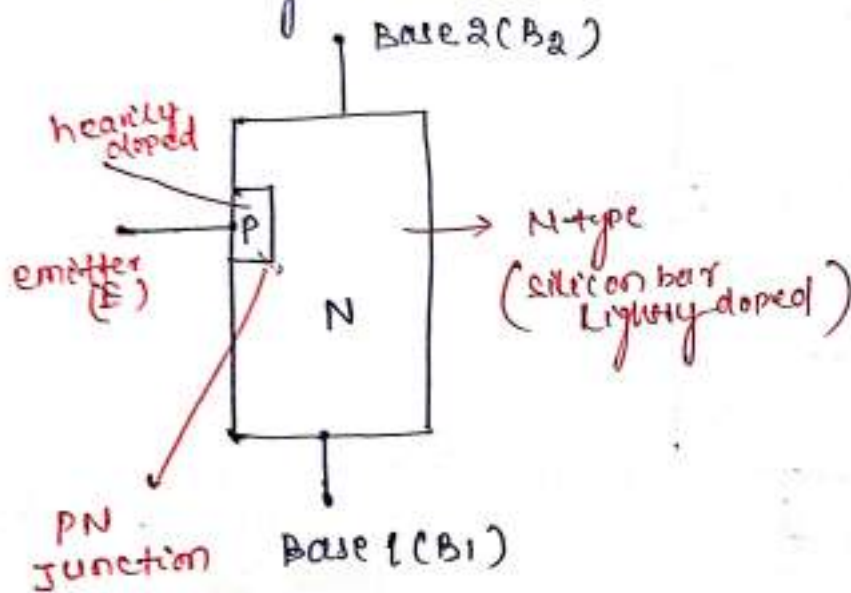 Base 2 (B2)
heavily
doped
P
emitter
(E)
N-type
(silicon bar
Lightly doped)
N
PN
Junction
Base 1 (B1)